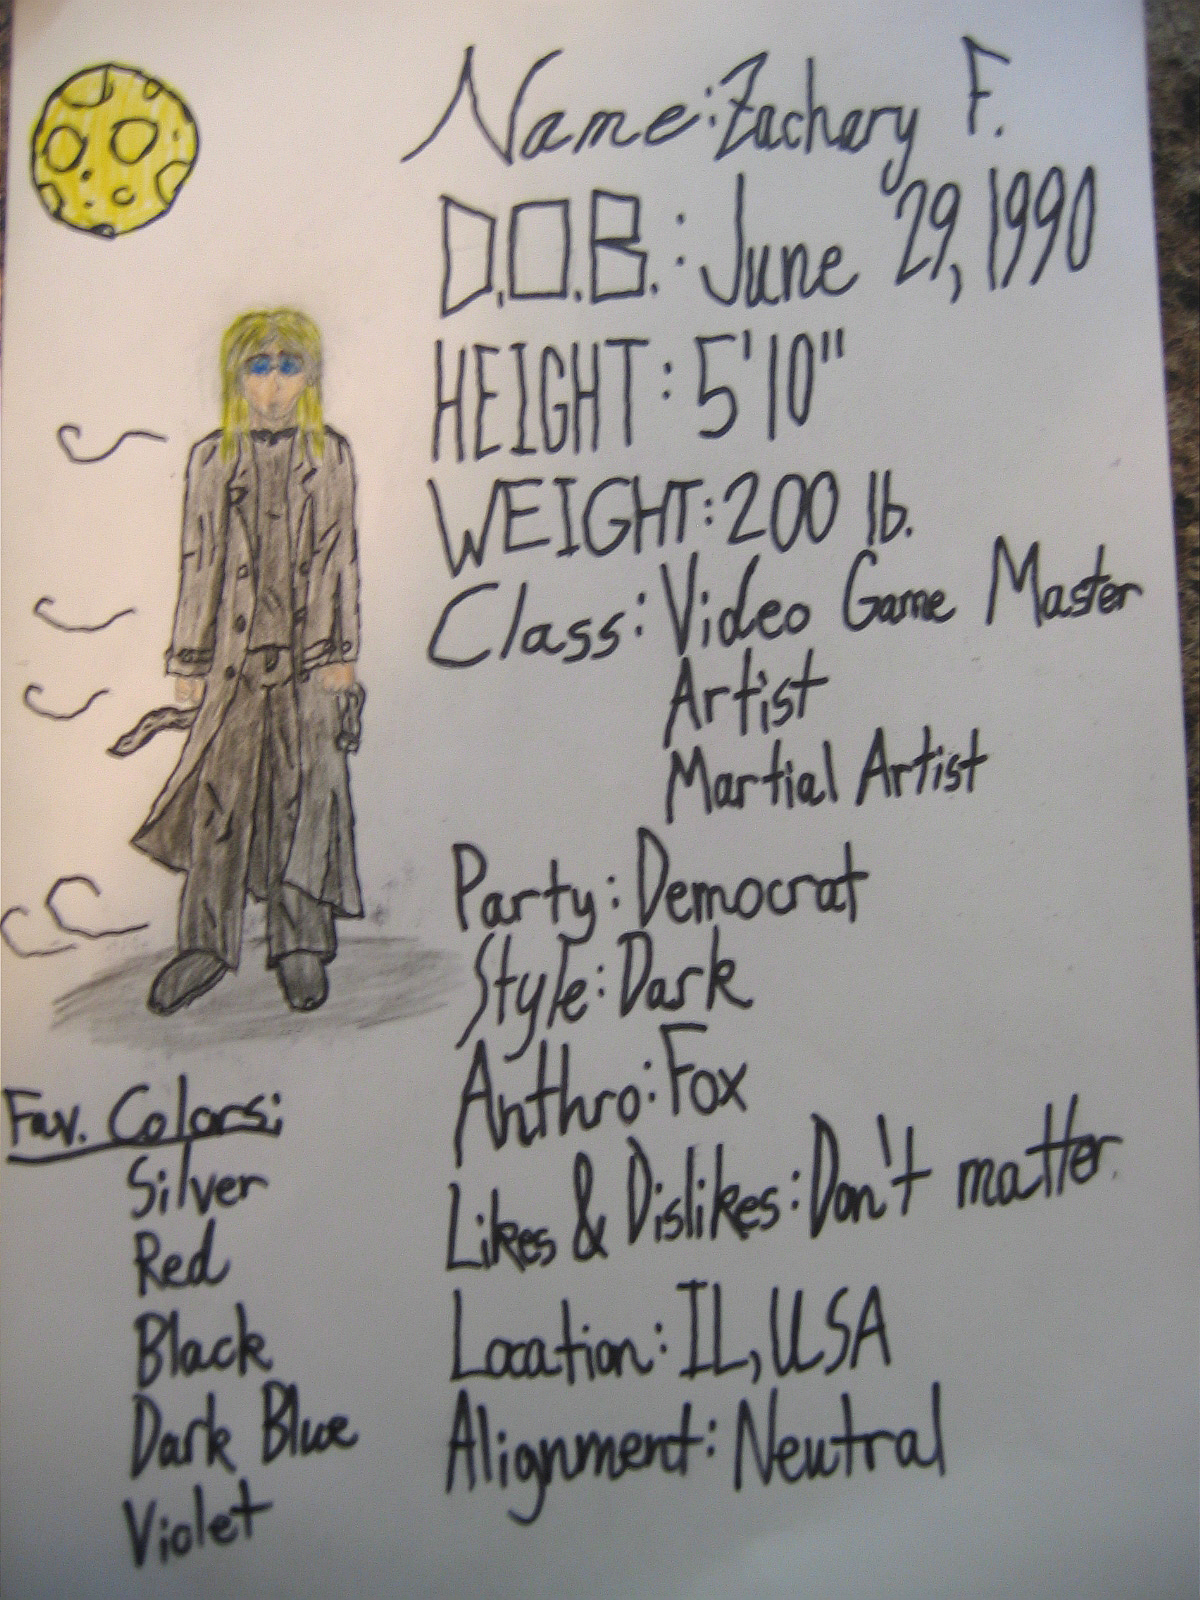 Name: Zachary F.
D.O.B.: June 29, 1990
HEIGHT: 5'10"
WEIGHT: 200 lb.
Class: Video Game Master
Artist
Martial Artist
Party: Democrat
Style: Dark
Anthro: Fox
Likes & Dislikes: Don't matter.
Location: IL, USA
Alignment: Neutral
Fav. Colors:
Silver
Red
Black
Dark Blue
Violet